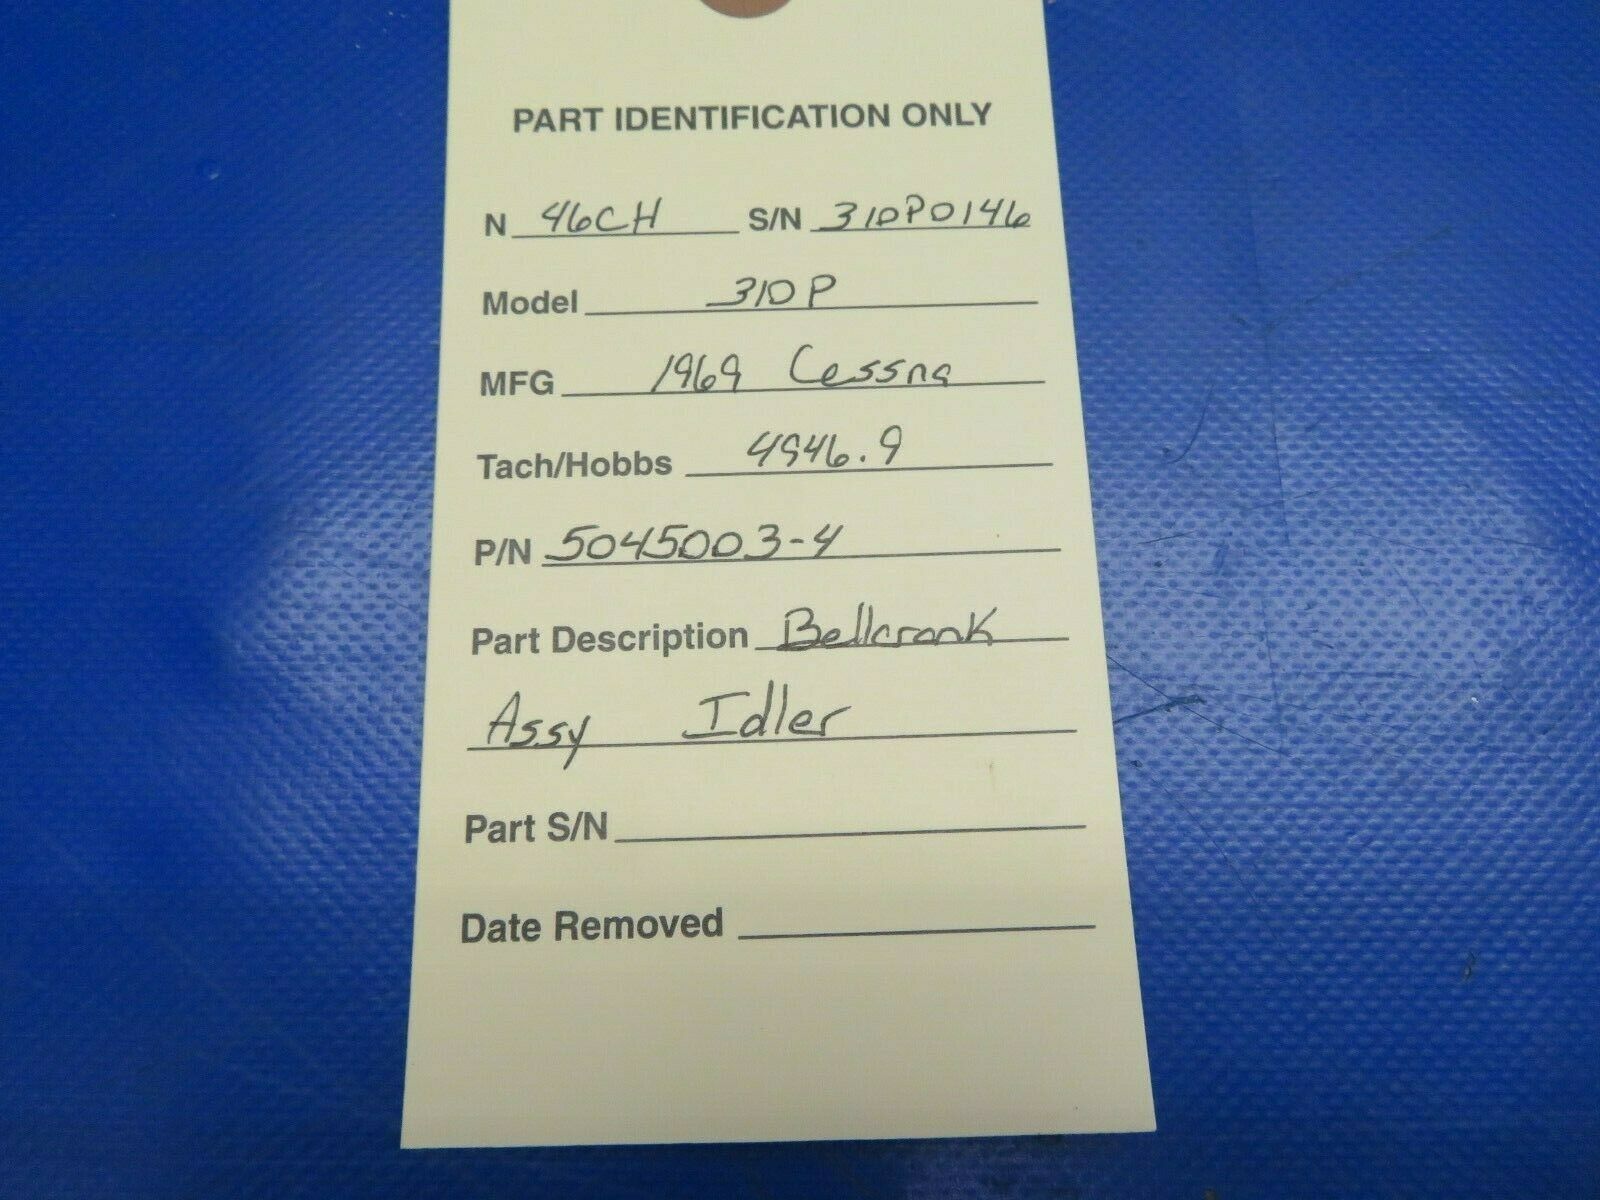 PART IDENTIFICATION ONLY
N 46CH S/N 310P0146
Model 310P
MFG 1969 Cessna
Tach/Hobbs 4946.9
P/N 5045003-4
Part Description Bellcrank
Assy Idler
Part S/N
Date Removed